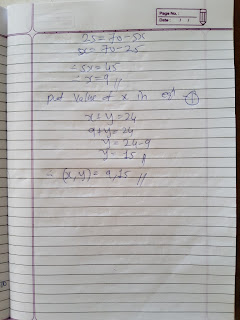 Page No.:
Date: / /
25 = 70 - 5x
5x = 70 - 25
∴ 5x = 45
∴ x = 9 //
put value of x in eqⁿ - ①
x + y = 24
9 + y = 24
y = 24 - 9
y = 15 //
∴ (x, y) = 9, 15 //